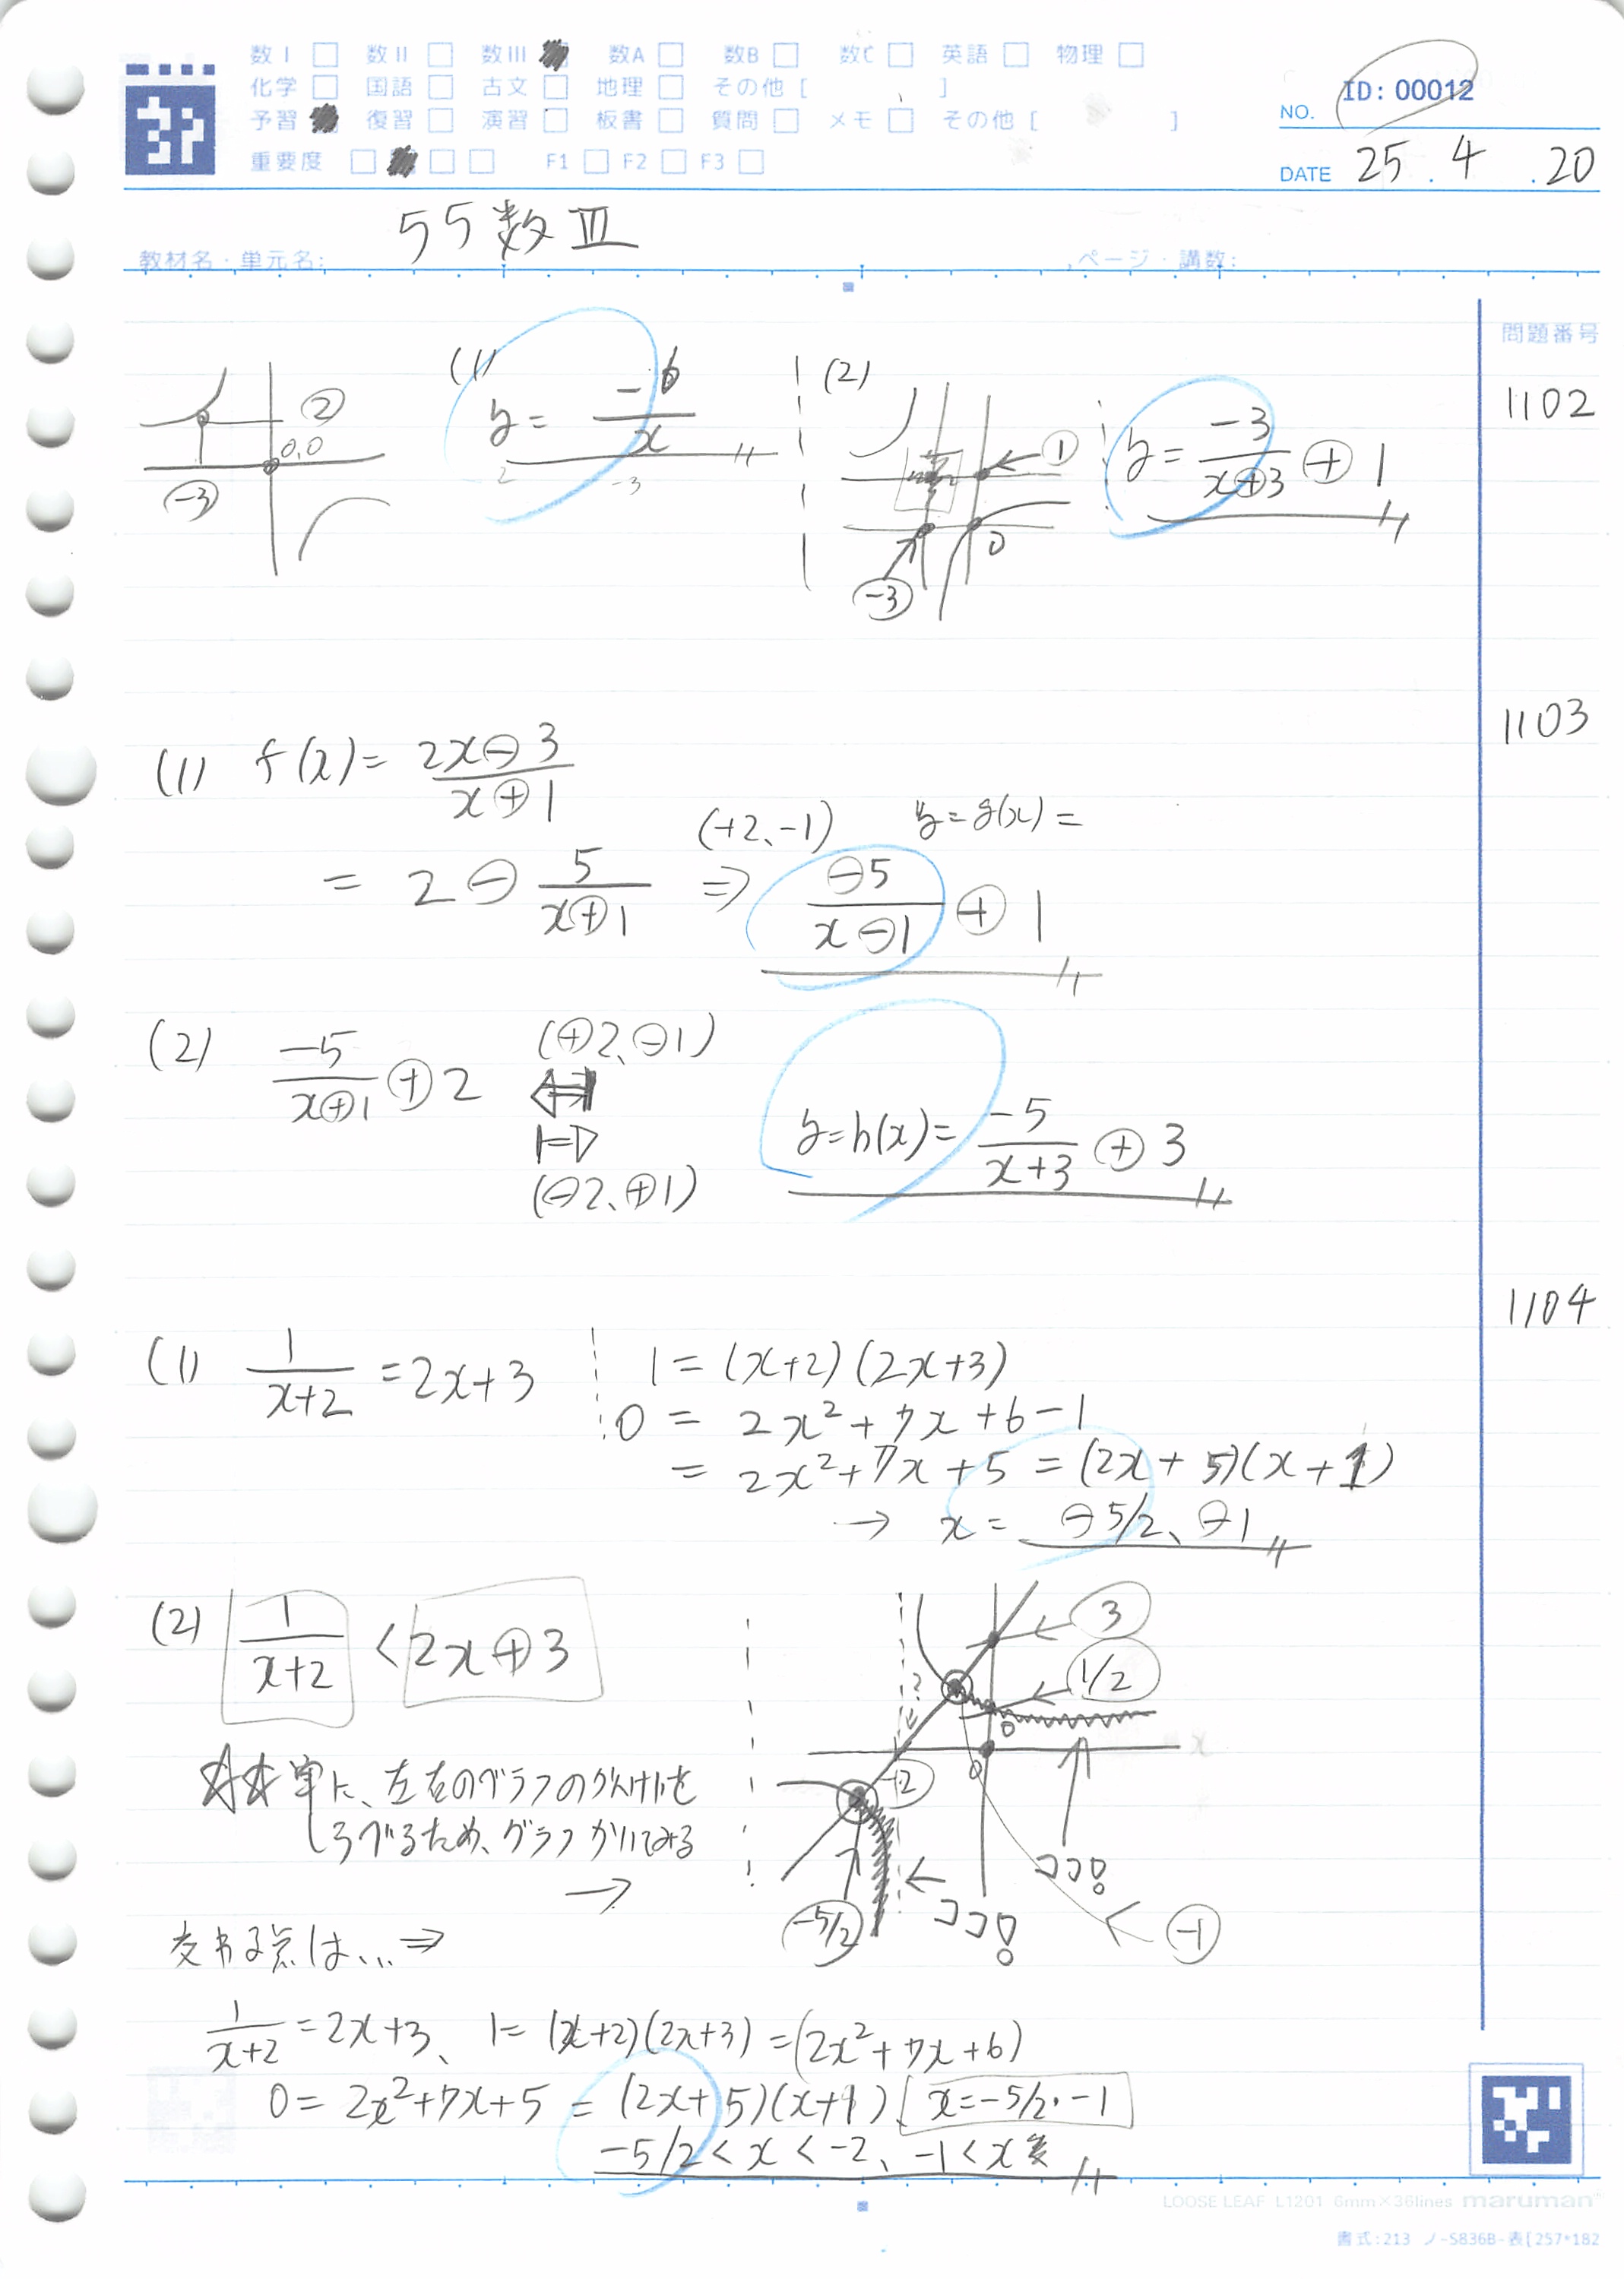 数I □ 数II □ 数III 数A □ 数B □ 数C □ 英語 □ 物理 □
化学 □ 国語 □ 古文 □ 地理 □ その他 [ ]
予習 復習 □ 演習 □ 板書 □ 質問 □ メモ □ その他 [ ]
重要度 □ □ □ F1 □ F2 □ F3 □
NO. ID: 00012
DATE 25 . 4 . 20
55 数Ⅲ
教材名・単元名: ページ・講数:
問題番号
1102
(1) y = -6/x
② 0,0 -3
2 -3
(2) ① 0 -3
y = -3/(x+3) + 1
1103
(1) f(x) = (2x-3)/(x+1)
= 2 - 5/(x+1) (+2、-1) ⇒ y = g(x) = -5/(x-1) + 1
(2) -5/(x+1) + 2 (+2、-1)
(-2、+1)
y = h(x) = -5/(x+3) + 3
1104
(1) 1/(x+2) = 2x+3
1 = (x+2)(2x+3)
0 = 2x²+7x+6-1
= 2x²+7x+5 = (2x+5)(x+1)
→ x = -5/2、-1
(2) 1/(x+2) < 2x+3
3
1/2
0
0
-2
-5/2
ココ!
ココ!
-1
☆☆単に、左右のグラフの
しらべるため、グラフかいてみる
→
交わる点は... ⇒
1/(x+2) = 2x+3、 1 = (x+2)(2x+3) = (2x²+7x+6)
0 = 2x²+7x+5 = (2x+5)(x+1) x=-5/2・-1
-5/2 < x < -2、-1 < x
LOOSE LEAF L1201 6mm×36lines maruman
書式:213 ノ-S836B-表[257*182